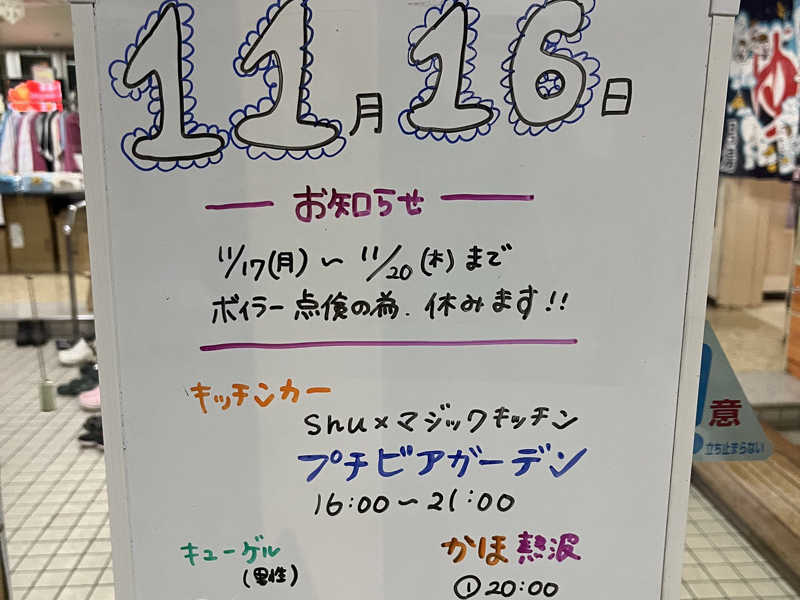 11月16日
お知らせ
11/17(月)～11/20(木)まで
ボイラー点検の為、休みます!!
キッチンカー
Shu×マジックキッチン
プチビアガーデン
16:00～21:00
キューゲル
(男性)
かほ熱波
①20:00
意
立ち止まらない
ゆ